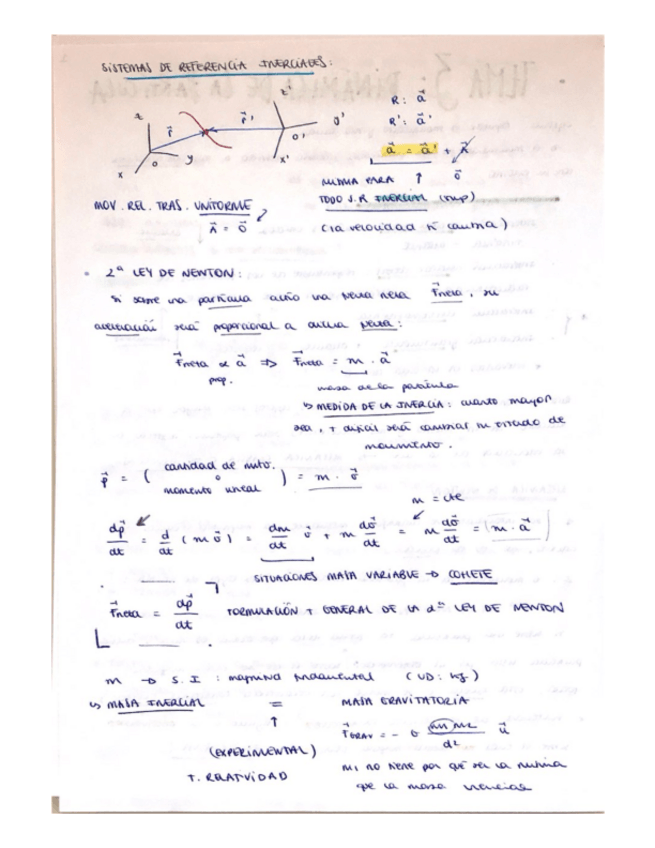 SISTEMAS DE REFERENCIA INERCIALES:
z z'
r⃗ r⃗'
O y O' y'
x x'
R: a⃗
R': a⃗'
a⃗ = a⃗' + A⃗
0⃗
MISMA PARA
TODO S.R INERCIAL (imp)
MOV. REL. TRAS. UNIFORME
A⃗ = 0⃗
(la velocidad sí cambia)
• 2ª LEY DE NEWTON:
Si sobre una partícula actúa una fuerza neta F⃗neta, su
aceleración será proporcional a dicha fuerza:
F⃗neta ∝ a⃗ => F⃗neta = m . a⃗
prop.
masa de la partícula
↳ MEDIDA DE LA INERCIA: cuanto mayor
sea, + difícil será cambiar su estado de
movimiento.
p⃗ = ( cantidad de mvto. o momento lineal ) = m . v⃗
m = cte
dp⃗/dt = d/dt (m v⃗) = dm/dt v⃗ + m dv⃗/dt = m dv⃗/dt = m . a⃗
SITUACIONES MASA VARIABLE → COHETE
F⃗neta = dp⃗/dt FORMULACIÓN + GENERAL DE LA 2ª LEY DE NEWTON
m → S.I : magnitud fundamental (UD: kg)
↳ MASA INERCIAL = MASA GRAVITATORIA
↑
(EXPERIMENTAL)
T. RELATIVIDAD
F⃗GRAV = - G m1 m2 / d² u⃗
m1 no tiene por qué ser la misma
que la masa inercial